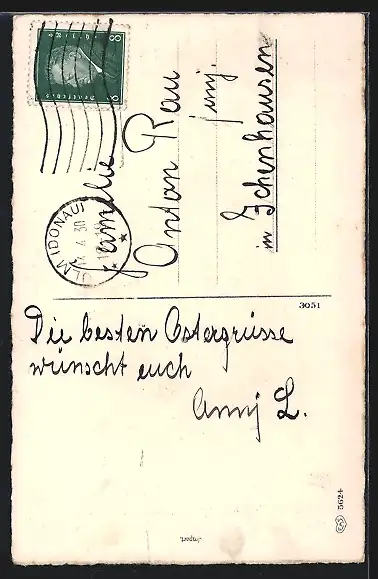 Die besten Ostergrüsse
wünscht euch
Annj L.
Familie
Anton Rau
junj.
in Ichenhausen
ULM (DONAU)
4 30
Deutsches Reich
8
3051
Import.
5624